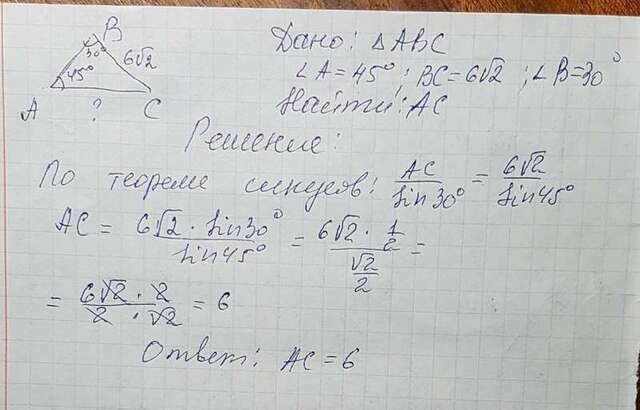 B
30° 6√2
45°
A ? C
Дано: △ABC
∠A = 45°; BC = 6√2; ∠B = 30°
Найти: AC
Решение:
По теореме синусов: AC/sin30° = 6√2/sin45°
AC = 6√2 · sin30°/sin45° = 6√2 · 1/2/√2/2 =
= 6√2 · 2/2 · √2 = 6
Ответ: AC = 6